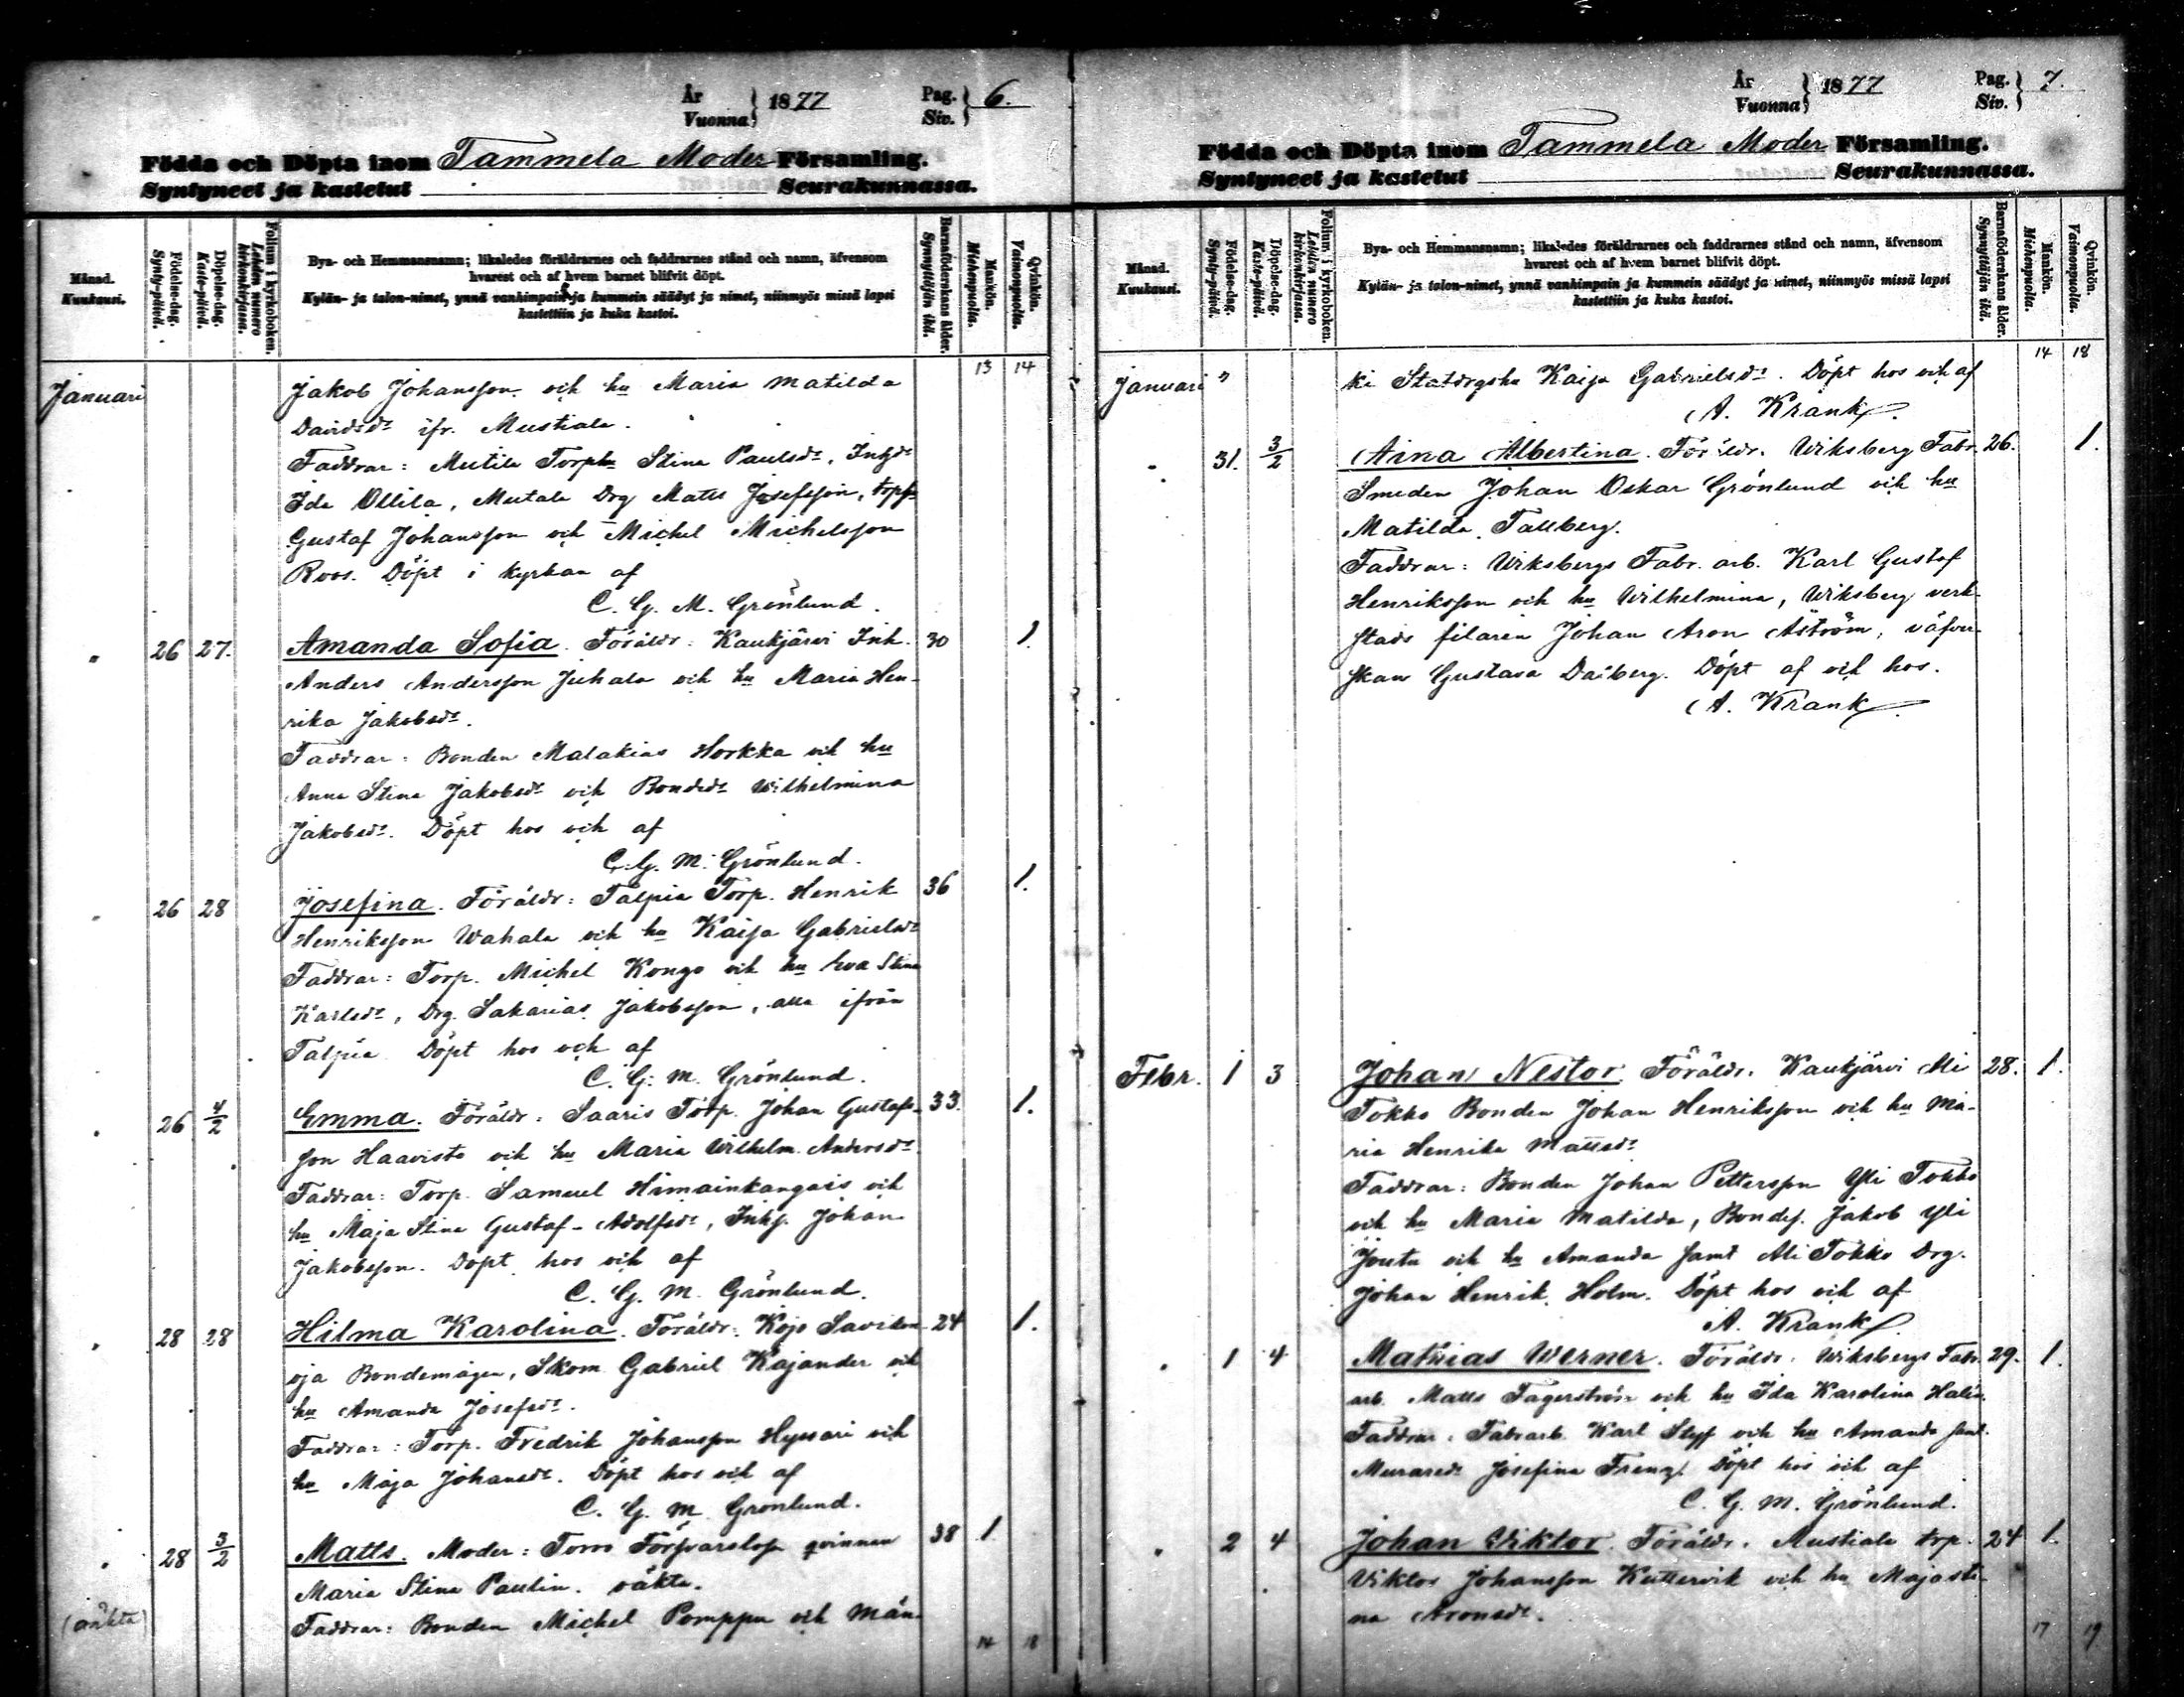 År
Vuonna } 1877
Pag.
Siv. } 6.
Födda och Döpta inom Tammela Moder Församling.
Syntyneet ja kastetut Seurakunnassa.
Månad.
Kuukausi.
Födelse-dag.
Synty-päivä.
Döpelse-dag.
Kaste-päivä.
Folium i kyrkoboken.
Lehden numero kirkonkirjassa.
Bya- och Hemmansnamn; likaledes föräldrarnes och faddrarnes stånd och namn, äfvensom
hvarest och af hvem barnet blifvit döpt.
Kylän- ja talon-nimet, ynnä vanhimpain ja kummein säädyt ja nimet, niinmyös missä lapsi
kastettiin ja kuka kastoi.
Barnaföderskans ålder.
Synnyttäjän ikä.
Mankön.
Miehenpuolta.
Qvinkön.
Vaimonpuolta.
13 14
Januari Jakob Johansson och hu Maria Matilda
Davidsdr ifr. Mustiala.
Faddrar: Mutila Stina Paulsdr,
Ida Ollila, Drg Matts Josefsson,
Gustaf Johansson och Michel Michelsson
Roos. Döpt i kyrkan af
C. G. M. Grönlund.
" 26 27. Amanda Sofia. Föräldr: Kaukjärvi Inh. 30 1.
Anders Andersson Juhala och hu Maria Hen-
rika Jakobsdr.
Faddrar: Bonden Malakias Horkka och hu
Anna Stina Jakobsdr och Bondedr Wilhelmina
Jakobsdr. Döpt hos och af
C. G. M. Grönlund.
" 26 28 Josefina. Föräldr: Talpia Torp. Henrik 36 1.
Henriksson Wahala och hu Kaisa Gabrielsdr
Faddrar: Torp. Michel Kongo och hu Eva Stina
Karlsdr, Drg. Sakarias Jakobsson, alla ifrån
Talpia. Döpt hos och af
C. G. M. Grönlund.
" 26 4/2 Emma. Föräldr: Saaris Torp. Johan Gustafs- 33. 1.
son Haavisto och hu Maria Wilhelm. Andersdr.
Faddrar: Torp. Samuel Himainkangais och
hu Maja Stina Gustaf-Adolfsdr, Johan
Jakobsson. Döpt hos och af
C. G. M. Grönlund.
" 28 28 Hilma Karolina. Föräldr: Kojo Savikon- 24 1.
oja Bondemågen, Skom. Gabriel Kajander och
hu Amanda Josefsdr.
Faddrar: Torp. Fredrik Johansson Hyssari och
hu Maja Johansdr. Döpt hos och af
C. G. M. Grönlund.
" 28 3/2 Matts. Moder: Torro Försvarslösa qvinnan 38 1
Maria Stina Paulin. oäkta.
(oäkta) Faddrar: Bonden Michel Pomppu och Män-
14 18
År
Vuonna } 1877
Pag.
Siv. } 7.
Födda och Döpta inom Tammela Moder Församling.
Syntyneet ja kastetut Seurakunnassa.
Månad.
Kuukausi.
Födelse-dag.
Synty-päivä.
Döpelse-dag.
Kaste-päivä.
Folium i kyrkoboken.
Lehden numero kirkonkirjassa.
Bya- och Hemmansnamn; likaledes föräldrarnes och faddrarnes stånd och namn, äfvensom
hvarest och af hvem barnet blifvit döpt.
Kylän- ja talon-nimet, ynnä vanhimpain ja kummein säädyt ja nimet, niinmyös missä lapsi
kastettiin ja kuka kastoi.
Barnaföderskans ålder.
Synnyttäjän ikä.
Mankön.
Miehenpuolta.
Qvinkön.
Vaimonpuolta.
14 18
Januari " ki Statdrgshu Kaisa Gabrielsdr. Döpt hos och af
A. Krank.
" 31. 3/2 Aina Albertina. Föräldr. Wiksberg Fabr. 26. 1.
Smeden Johan Oskar Grönlund och hu
Matilda Tallberg.
Faddrar: Wiksbergs Fabr. arb. Karl Gustaf
Henriksson och hu Wilhelmina, Wiksberg verk-
stads filaren Johan Aron Åström, väfver-
skan Gustava Dalberg. Döpt af och hos.
A. Krank
Febr. 1 3 Johan Nestor. Föräldr. Kaukjärvi Ali 28. 1.
Tokko Bonden Johan Henriksson och hu Ma-
ria Henrika Mattsdr
Faddrar: Bonden Johan Pettersson Yli Tokko
och hu Maria Matilda, Bondes. Jakob Yli
Joutu och hu Amanda samt Ali Tokko Drg.
Johan Henrik Holm. Döpt hos och af
A. Krank
" 1 4 Mathias Werner. Föräldr. Wiksbergs Fabr. 29. 1.
arb. Matts Fagerström och hu Ida Karolina
Faddrar: Fabrarb. Karl och hu Amanda samt
Muraredr Josefina Döpt hos och af
C. G. M. Grönlund.
" 2 4 Johan Viktor. Föräldr. Mustiala trp. 24 1.
Viktor Johansson Kuttervik och hu Maja Sti-
na Aronsdr.
17 19